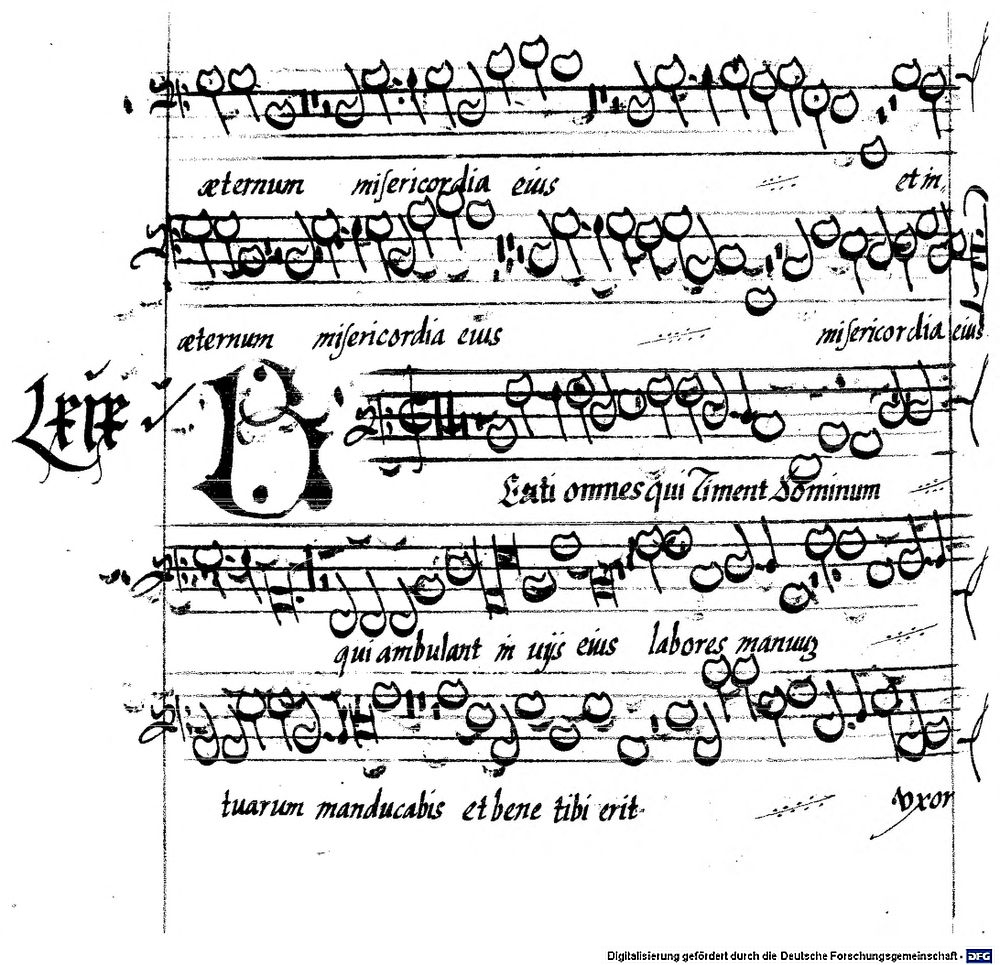 æternum misericordia eius et in
æternum misericordia eius misericordia eius
Lxix
Beati omnes qui Timent Dominum
qui ambulant in uijs eius labores manuuʒ
tuarum manducabis et bene tibi erit vxor
Digitalisierung gefördert durch die Deutsche Forschungsgemeinschaft - DFG